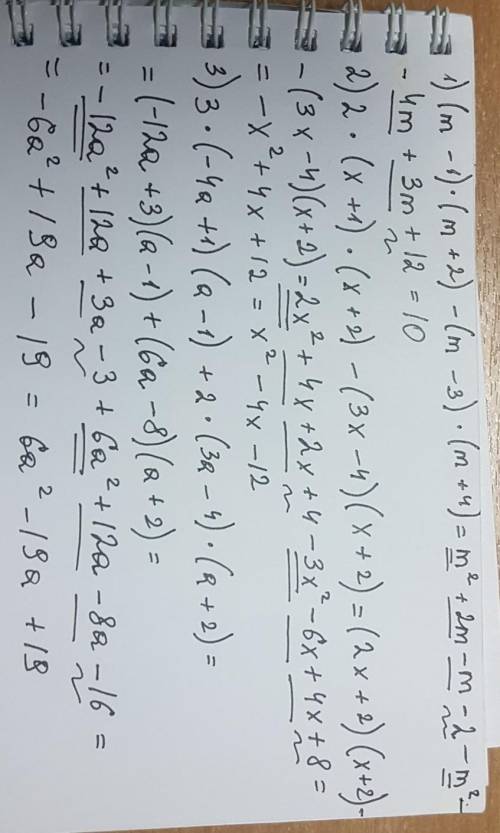 1) (m - 1) · (m + 2) - (m - 3) · (m + 4) = m² + 2m - m - 2 - m² -
- 4m + 3m + 12 = 10
2) 2 · (x + 1) · (x + 2) - (3x - 4)(x + 2) = (2x + 2)(x + 2) -
- (3x - 4)(x + 2) = 2x² + 4x + 2x + 4 - 3x² - 6x + 4x + 8 =
= - x² + 4x + 12 = x² - 4x - 12
3) 3 · (-4a + 1)(a - 1) + 2 · (3a - 4) · (a + 2) =
= (-12a + 3)(a - 1) + (6a - 8)(a + 2) =
= - 12a² + 12a + 3a - 3 + 6a² + 12a - 8a - 16 =
= - 6a² + 19a - 19 = 6a² - 19a + 19